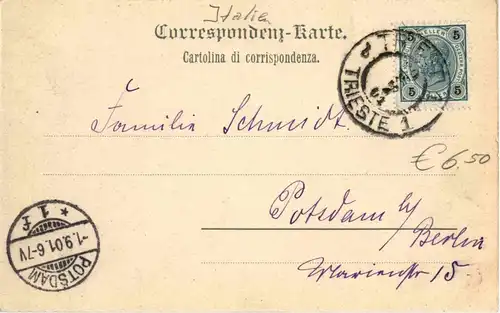 Italien
Correspondenz-Karte.
Cartolina di corrispondenza.
5 5
5 5
TRIESTE 1
Familie Schmidt.
€ 6.50
Potsdam b/
Berlin
Marienstr 15.
* 1 f *
-1.9.01.6-7V
POTSDAM